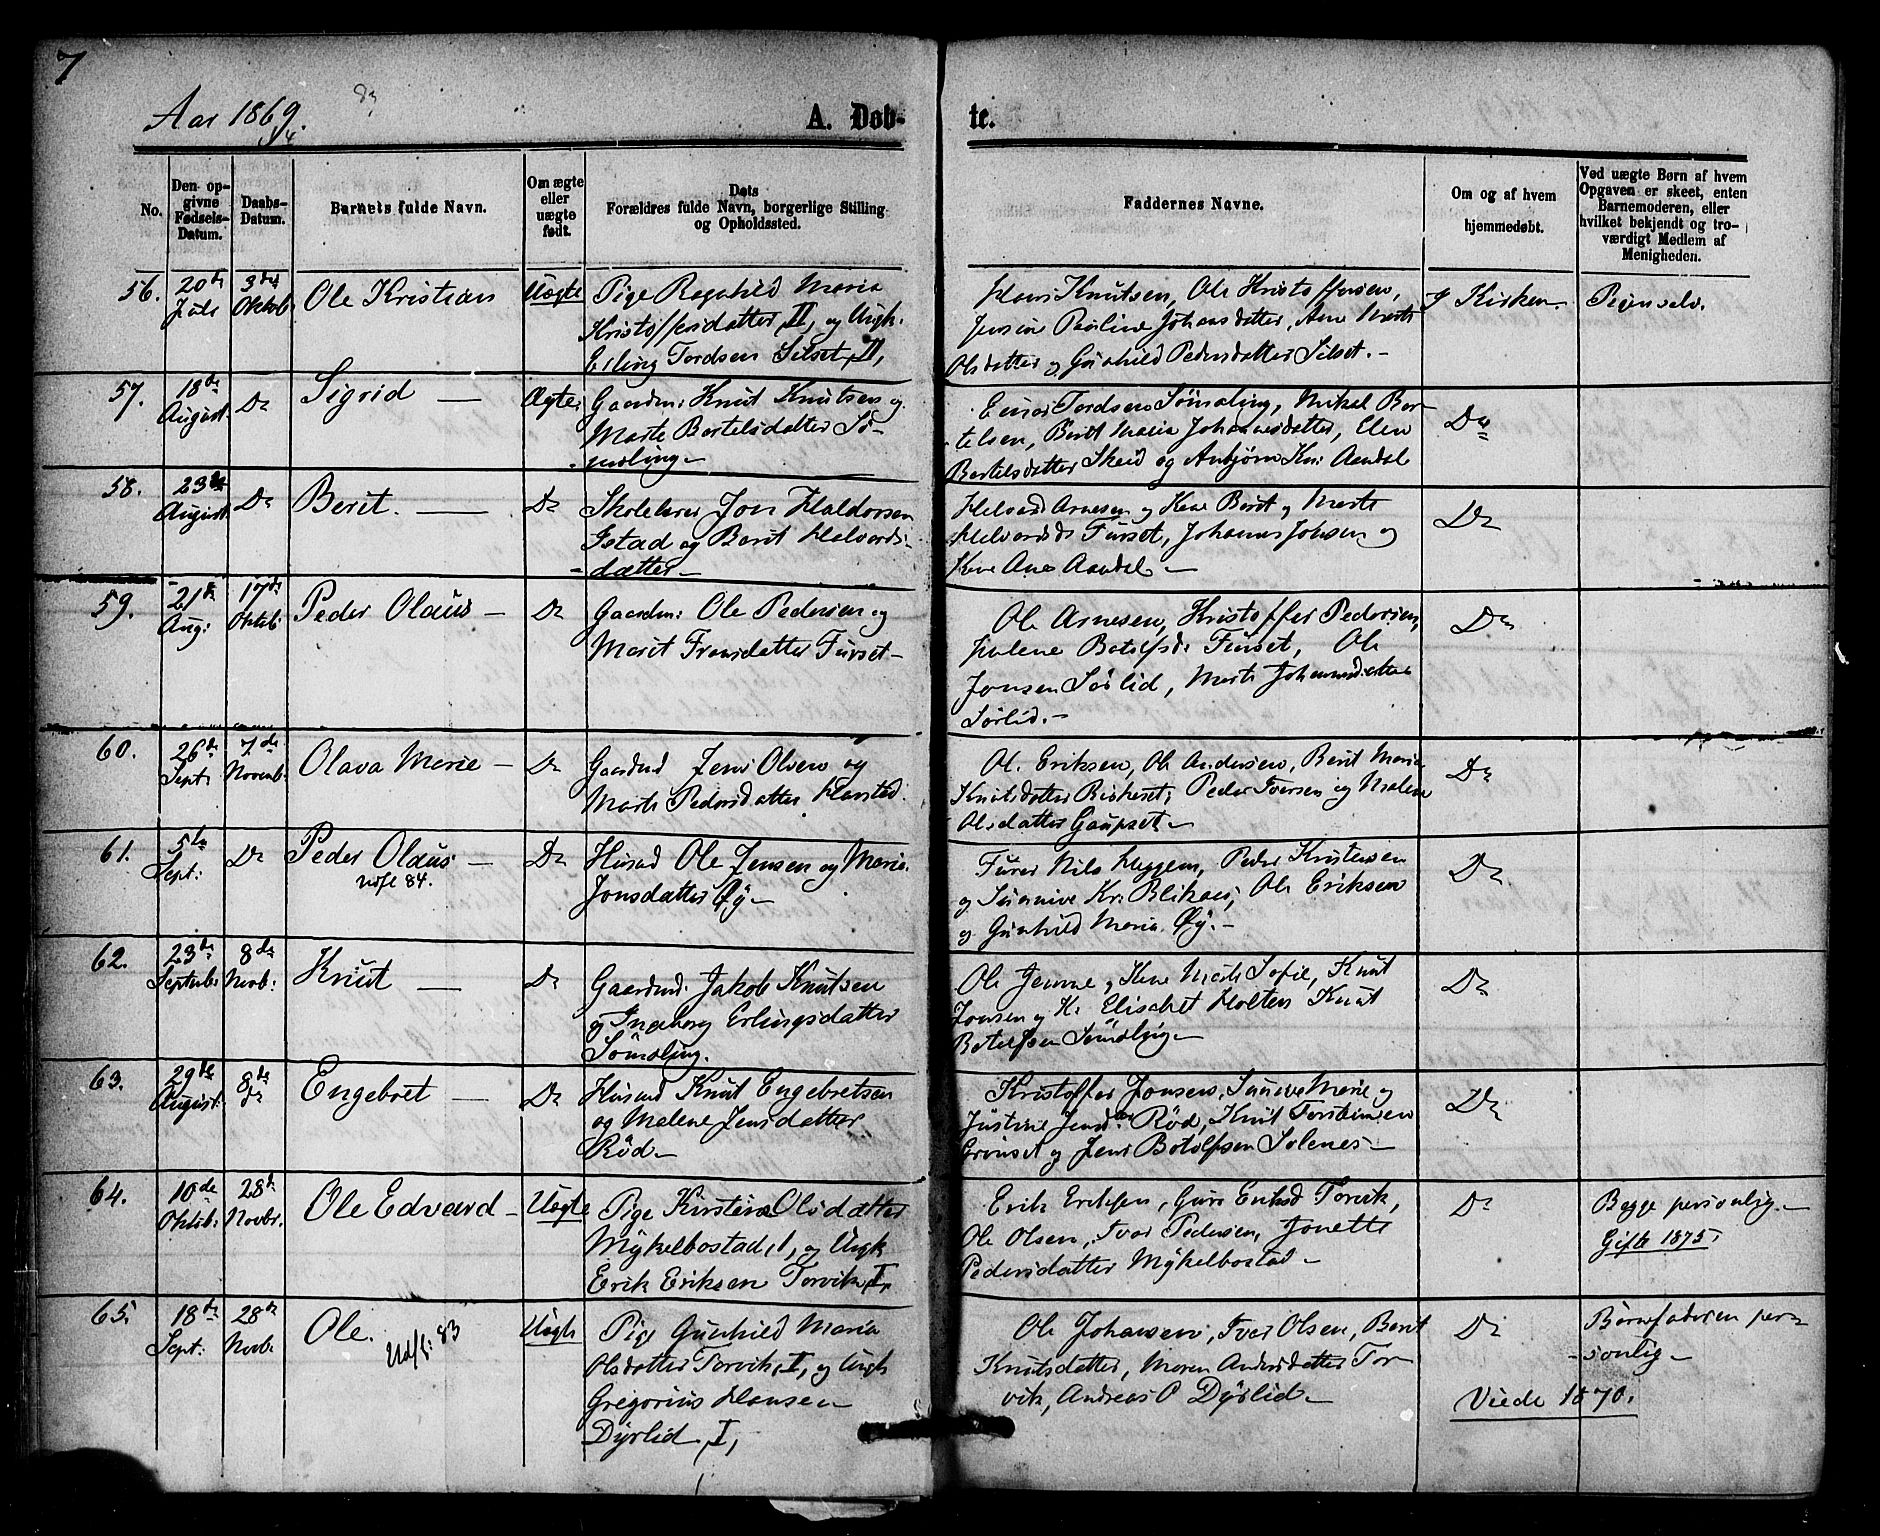 7
Aar 1869.
A. Døb-
te.
No.
Den op-
givne
Fødsels-
Datum.
Daabs-
Datum.
Barnets fulde Navn.
Om ægte
eller
uægte
født.
Dets
Forældres fulde Navn, borgerlige Stilling
og Opholdssted.
Faddernes Navne.
Om og af hvem
hjemmedøbt.
Ved uægte Børn af hvem
Opgaven er skeet, enten
Barnemoderen, eller
hvilket bekjendt og tro-
værdigt Medlem af
Menigheden.
56.
20de
Juli
3de
Oktob.
Ole Kristian
Uægte
Pige Ragnhild Maria
Kristoffersdatter, II, og Ungk.
Erling Tordsen Silset, II,
Hans Knutsen, Ole Kristoffersen,
Pauline Johansdatter, Ane Marte
Olsdatter og Gunhild Pedersdatter Silset.-
I Kirken
Pigen selv.
57.
18de
August.
Do
Sigrid —
Ægte
Gaardm: Knut Knutsen og
Marte Bertelsdatter Sø-
-mdling-
Einar Tordsen Sømdling, Mikal Ber-
telsen, Berit Maria Johannesdatter, Elen
Bertelsdatter Skeid og Anbjørn Kn: Aandal
Do
58.
23de
August.
Do
Berit. —
Do
Skolelærer Jon Haldorsen
Istad og Berit Halvords-
-datter-
Halvord Arnesen og Kone Berit og Marte
Halvordsd: Furset, Johannes Johnsen og
Kone Ane Aandal-
Do
59.
21de
Aug:
17de
Oktob.
Peder Olaus —
Do
Gaardm: Ole Pedersen og
Marit Fransdatter Furset-
Ole Arnesen, Kristoffer Pedersen,
Malene Botolfsd: Furset, Ole
Jonsen Sørlid, Marte Johannesdatter
Sørlid.-
Do
60.
26de
Sept:
7de
Novemb.
Olava Marie —
Do
Gaardmd Jens Olsen og
Marte Pedersdatter Harstad.
Ole Eriksen, Ole Andersen, Berit Maria
Knutsdatter Birkeset, Peder Iversen og Malene
Olsdatter Gaupset-
Do
61.
5te
Sept:
Do
Peder Olaus —
Udfl 84.
Do
Husmd Ole Jensen og Maria
Jonsdatter Øy-
Furer Nils Heggem, Peder Kristensen
og Sunnive Kr: Blikaas, Ole Eriksen
og Gunhild Maria Øy.-
Do
62.
23de
Septemb:
8de
Novb:
Knut —
Do
Gaardmd: Jakob Knutsen
og Ingeborg Erlingsdatter
Sømdling.
Ole Jenne, Kone Marte Sofie, Knut
Jonsen og K: Elisabet Holten Knut
Botolfsen Sømdling-
Do
63.
29de
August.
8de
Do
Engebret —
Do
Husmd Knut Engebretsen
og Malene Jensdatter
Rød-
Kristoffer Jonsen, Sunneve Marie og
Justine Jensdtr Rød, Knut Torsteinsen
Grønset og Jens Botolfsen Solenes-
Do
64.
10de
Oktob:
28de
Novbr.
Ole Edvard —
Uægte
Pige Kirstine Olsdatter
Mykelbostad, I, og Ungk
Erik Eriksen Torvik, I,
Erik Eriksen, Guri Eriksd Torvik,
Ole Olsen, Ivar Pedersen, Jonette
Pedersdatter Mykelbostad-
Do
Begge personlig.-
Gifte 1875.
65.
18de
Sept:
28de
Novb.
Ole.
Udfl: 83
Uægte
Pige Gunhild Maria
Olsdatter Torvik, I, og Ungk
Gregorius Hansen
Dyrlid, I,
Ole Johansen, Ivar Olsen, Berit
Knutsdatter, Maren Andersdatter Tor-
vik, Andreas P Dyrlid-
Do
Barnefaderen per-
-sonlig-
Viede 1870.